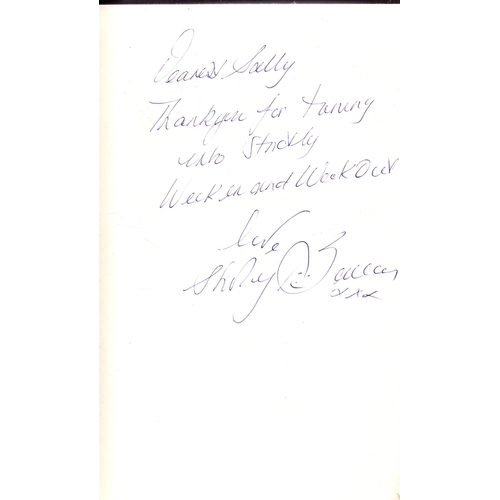 Dearest Sally
Thankyou for tuning
into Strictly
Week in and Week Out
love
Shirley Ballas
xxx